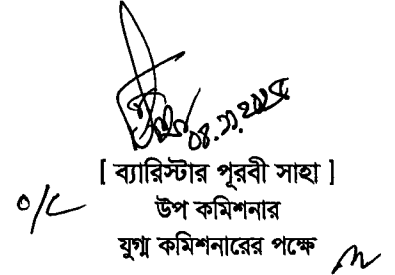 [ ব্যারিস্টার পূরবী সাহা ]
O/C
উপ কমিশনার
যুগ্ম কমিশনারের পক্ষে